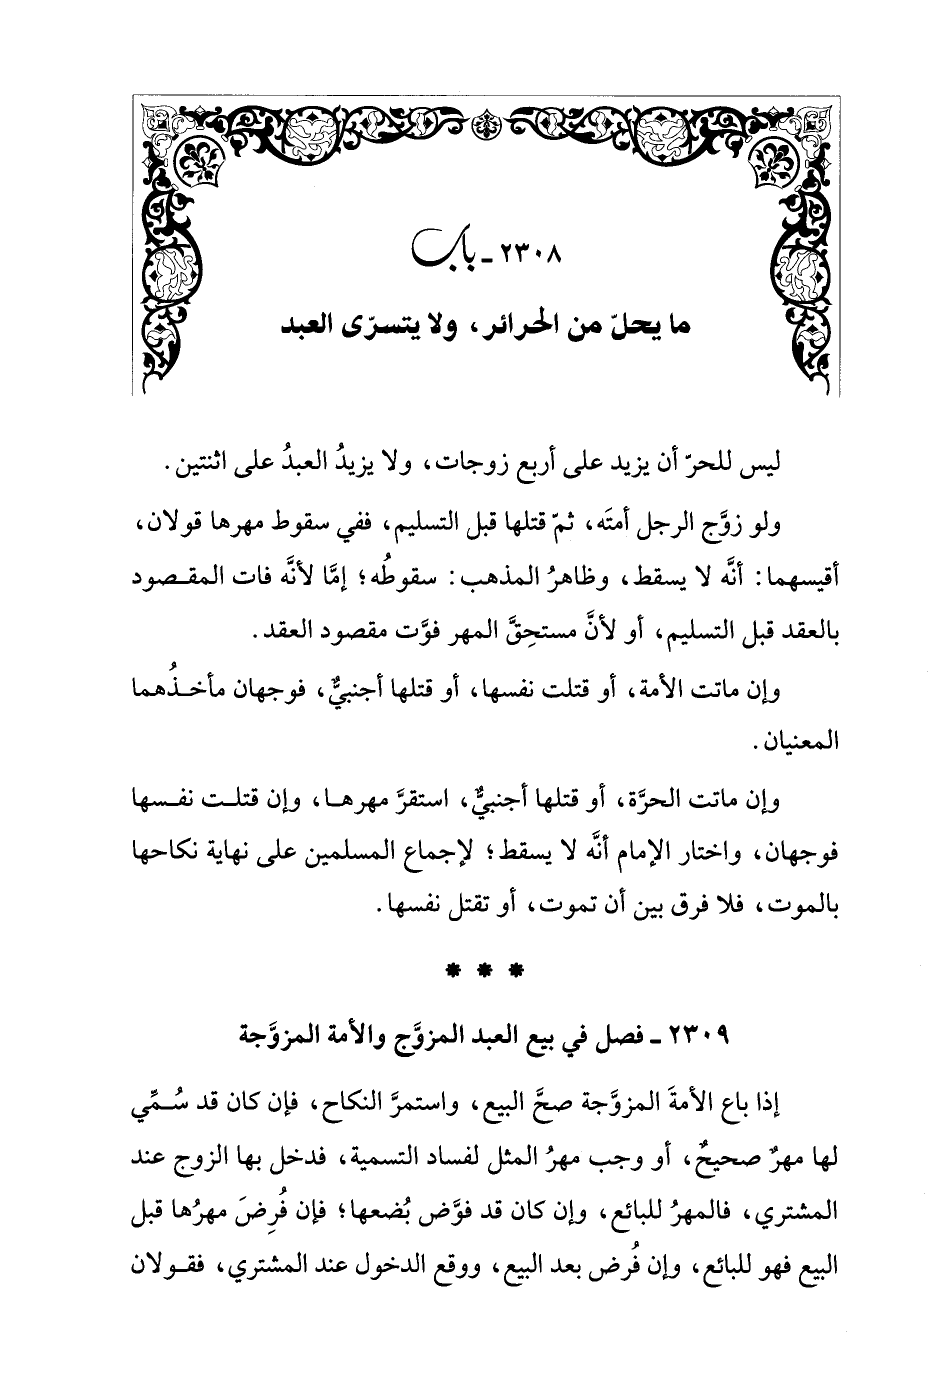 ٢٣٠٨ - باب
ما يحلّ من الحرائر، ولا يتسرّى العبد
ليس للحرّ أن يزيد على أربع زوجات، ولا يزيدُ العبدُ على اثنتين.
ولو زوَّج الرجل أمتَه، ثمّ قتلها قبل التسليم، ففي سقوط مهرها قولان،
أقيسهما: أنَّه لا يسقط، وظاهرُ المذهب: سقوطُه؛ إمَّا لأنَّه فات المقـصود
بالعقد قبل التسليم، أو لأنَّ مستحِقَّ المهر فوَّت مقصود العقد.
وإن ماتت الأمة، أو قتلت نفسها، أو قتلها أجنبيٌّ، فوجهان مأخـذُهما
المعنيان.
وإن ماتت الحرَّة، أو قتلها أجنبيٌّ، استقرَّ مهرهـا، وإن قتلـت نفـسها
فوجهان، واختار الإمام أنَّه لا يسقط؛ لإجماع المسلمين على نهاية نكاحها
بالموت، فلا فرق بين أن تموت، أو تقتل نفسها.
* * *
٢٣٠٩ - فصل في بيع العبد المزوَّج والأمة المزوَّجة
إذا باع الأمةَ المزوَّجة صحَّ البيع، واستمرَّ النكاح، فإن كان قد سُـمِّي
لها مهرٌ صحيحٌ، أو وجب مهرُ المثل لفساد التسمية، فدخل بها الزوج عند
المشتري، فالمهرُ للبائع، وإن كان قد فوَّض بُضعها؛ فإن فُرِضَ مهرُها قبل
البيع فهو للبائع، وإن فُرض بعد البيع، ووقع الدخول عند المشتري، فقـولان